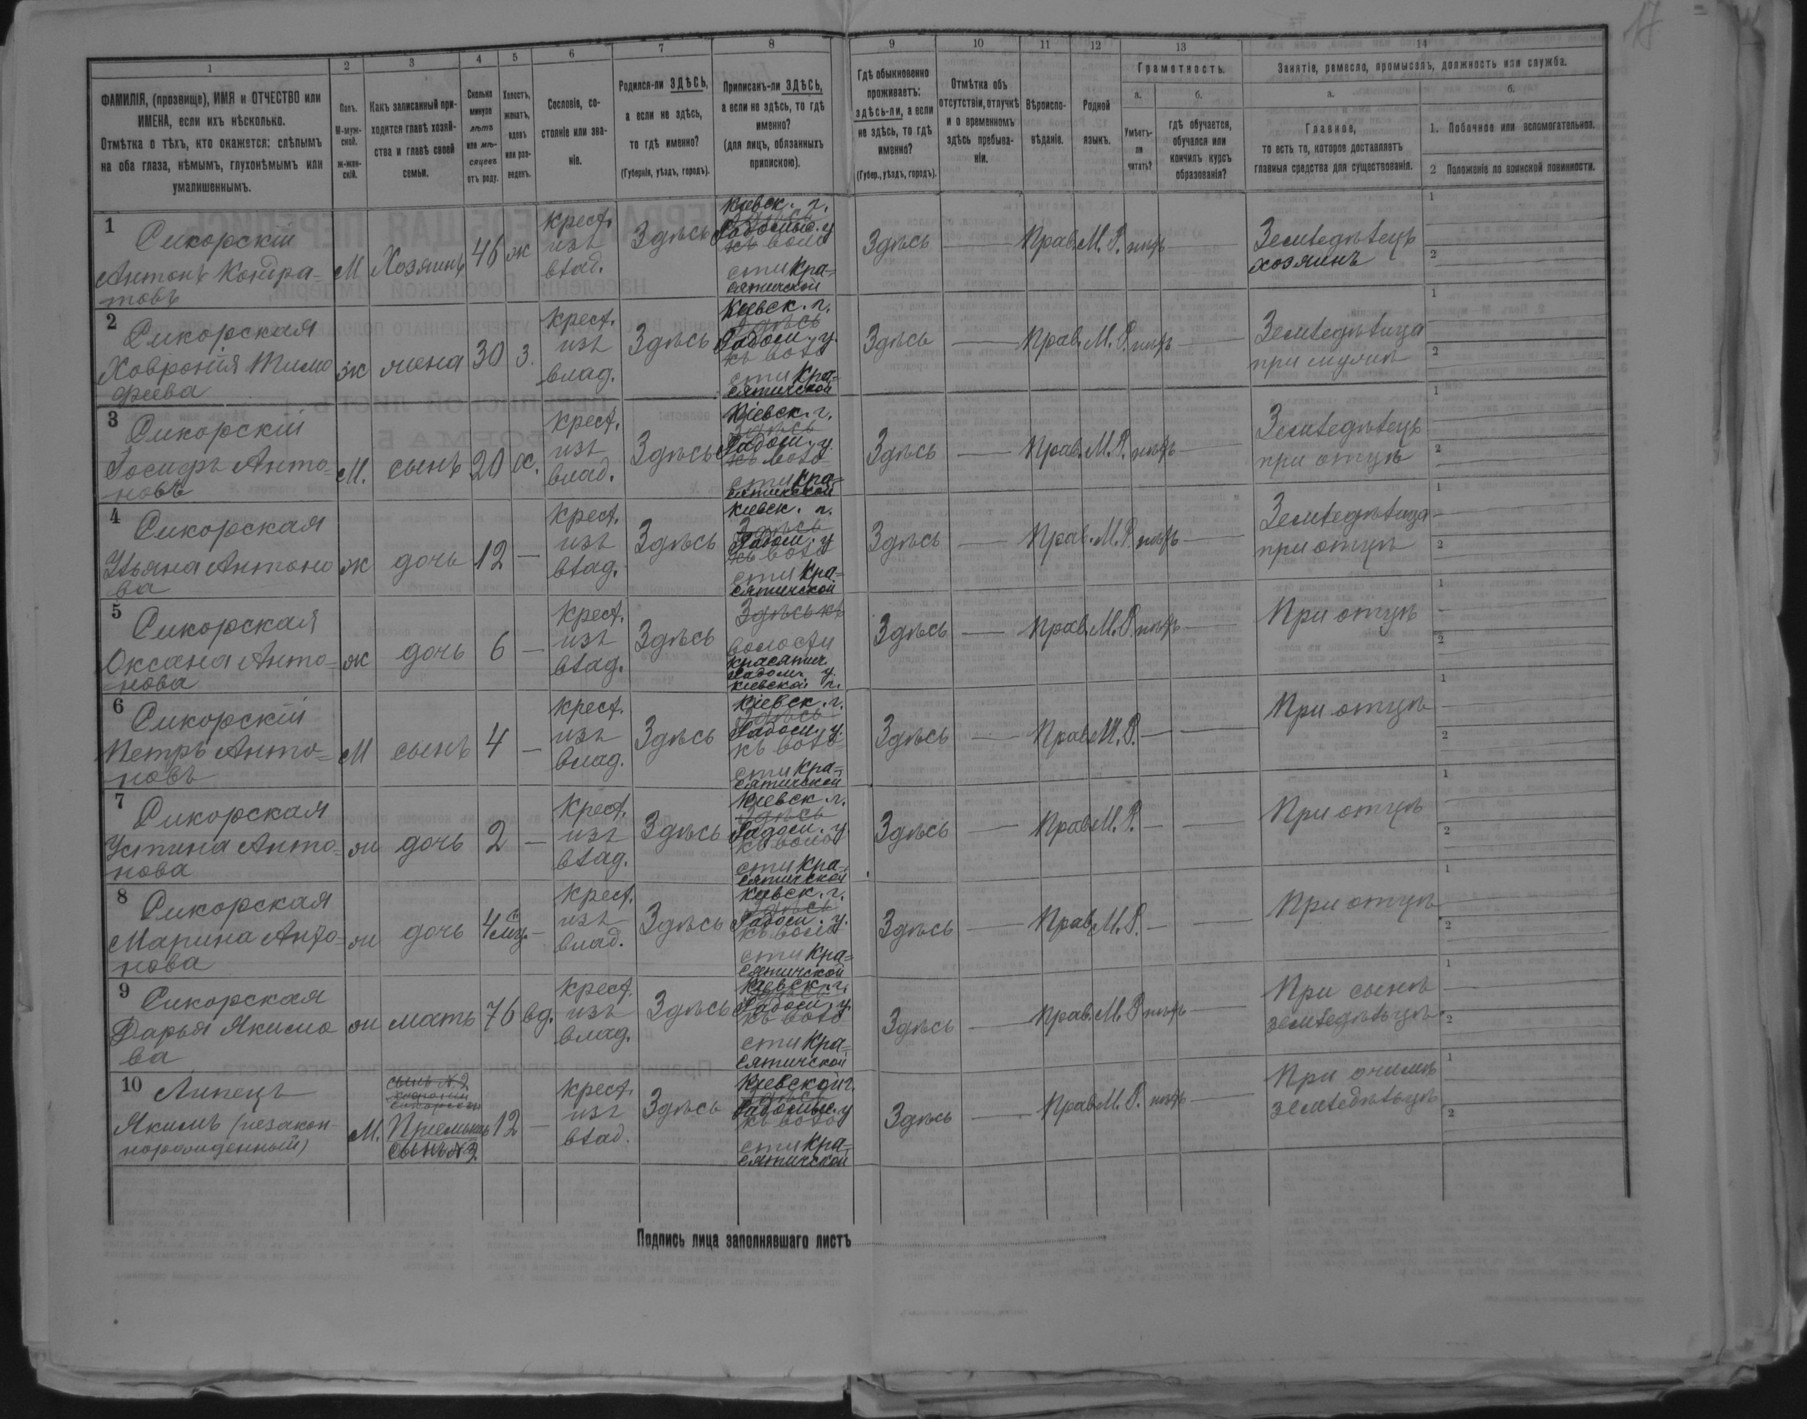 17
1
2
3
4
5
6
7
8
9
10
11
12
13
14
ФАМИЛІЯ, (прозвище), ИМЯ и ОТЧЕСТВО или
ИМЕНА, если ихъ нѣсколько.
Отмѣтка о тѣхъ, кто окажется: слѣпымъ
на оба глаза, нѣмымъ, глухонѣмымъ или
умалишеннымъ.
Полъ.
М-муж-
ской.
ж-жен-
скій.
Какъ записанный при-
ходится главѣ хозяй-
ства и главѣ своей
семьи.
Сколько
минуло
лѣтъ
или мѣ-
сяцевъ
отъ роду.
Холостъ,
женатъ,
вдовъ
или раз-
веденъ.
Сословіе, со-
стояніе или зва-
ніе.
Родился-ли ЗДѢСЬ,
а если не здѣсь,
то гдѣ именно?
(Губернія, уѣздъ, городъ).
Приписанъ-ли ЗДѢСЬ,
а если не здѣсь, то гдѣ
именно?
(для лицъ, обязанныхъ
припискою).
Гдѣ обыкновенно
проживаетъ:
здѣсь-ли, а если
не здѣсь, то гдѣ
именно?
(Губер., уѣздъ, городъ).
Отмѣтка объ
отсутствіи, отлучкѣ
и о временномъ
здѣсь пребыва-
ніи.
Вѣроиспо-
вѣданіе.
Родной
языкъ.
Грамотность.
а.
Умѣетъ-
ли
читать?
б.
гдѣ обучается,
обучался или
кончилъ курсъ
образованія?
Занятіе, ремесло, промыселъ, должность или служба.
а.
Главное,
то есть то, которое доставляетъ
главныя средства для существованія.
б.
1. Побочное или вспомогательное.
2 Положеніе по воинской повинности.
1 Сикорскій
Антонъ Кондра-
товъ
М Хозяинъ 46 ж
Крест.
изъ
влад.
Здѣсь
Кіевск. г.
Здѣсь
Радомысл. у
къ воло
сти Кра-
сятичской
Здѣсь — Прав. М. Р. нѣтъ —
Земледѣлецъ
хозяинъ
1
2
2 Сикорская
Ховронія Тимо
феева
ж жена 30 з.
Крест.
изъ
влад.
Здѣсь
Кіевск. г.
Здѣсь
Радом. у.
къ воло
сти Кра-
сятичской
Здѣсь — Прав. М. Р. нѣтъ —
Земледѣлица
при мужѣ
1
2
3 Сикорскій
Іосифъ Анто-
новъ
М. сынъ 20 х.
Крест.
изъ
влад.
Здѣсь
Кіевск. г.
Здѣсь
Радом. у
къ воло
сти Кра-
сятичской
Здѣсь — Прав. М. Р. нѣтъ —
Земледѣлецъ
при отцѣ
1
2
4 Сикорская
Ульяна Антоно
ва
ж дочь 12 —
Крест.
изъ
влад.
Здѣсь
Кіевск. г.
Здѣсь
Радом. у
къ воло
сти Кра-
сятичской
Здѣсь — Прав. М. Р. нѣтъ —
Земледѣлица
при отцѣ
1
2
5 Сикорская
Оксана Анто-
нова
ж дочь 6 —
Крест.
изъ
влад.
Здѣсь
Здѣсь къ
волости
Красятич
Радом. у.
Кіевской г.
Здѣсь — Прав. М. Р. нѣтъ —
При отцѣ
1
2
6 Сикорскій
Петръ Анто-
новъ
М сынъ 4 —
Крест.
изъ
влад.
Здѣсь
Кіевск. г.
Здѣсь
Радом. у.
къ воло
сти Кра-
сятичской
Здѣсь — Прав. М. Р. — —
При отцѣ
1
2
7 Сикорская
Устина Анто-
нова
ж дочь 2 —
Крест.
изъ
влад.
Здѣсь
Кіевск. г.
Здѣсь
Радом. у.
къ воло
сти Кра-
сятичской
Здѣсь — Прав. М. Р. — —
При отцѣ
1
2
8 Сикорская
Марина Анто-
нова
ж дочь 4 мц. —
Крест.
изъ
влад.
Здѣсь
Кіевск. г.
Здѣсь
Радом. у.
къ воло
сти Кра-
сятичской
Здѣсь — Прав. М. Р. — —
При отцѣ
1
2
9 Сикорская
Дарья Якимо
ва
ж мать 76 вд.
Крест.
изъ
влад.
Здѣсь
Кіевск. г.
Здѣсь
Радом. у.
къ воло
сти Кра-
сятичской
Здѣсь — Прав. М. Р. нѣтъ —
При сынѣ
земледѣльцѣ
1
2
10 Липецъ
Якимъ (незакон-
норожденный)
М.
сынъ №2
Ховроніи
Сикорской
Пріемышъ
сынъ №2
12 —
Крест.
изъ
влад.
Здѣсь
Кіевской г.
Здѣсь
Радомысл. у
къ воло
сти Кра-
сятичской
Здѣсь — Прав. М. Р. нѣтъ —
При отчимѣ
земледѣльцѣ
1
2
Подпись лица заполнявшаго листъ